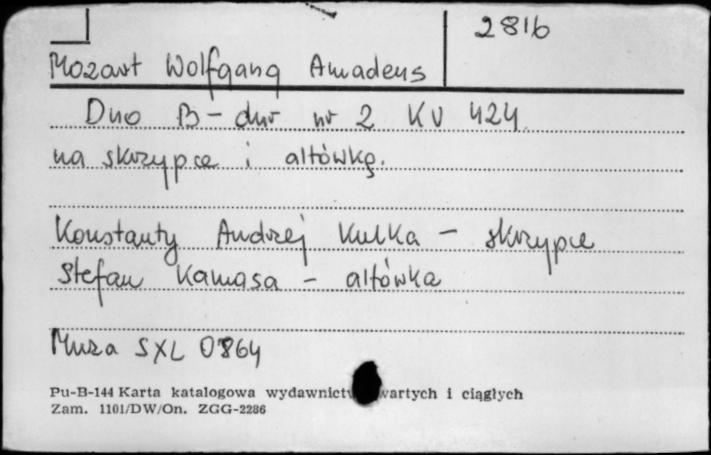 2816
Mozart Wolfgang Amadeus
Duo B-dur nr 2 KV 424
na skrzypce i altówkę.
Konstanty Andrzej Kulka - skrzypce
Stefan Kamasa - altówka
Muza SXL 0864
Pu-B-144 Karta katalogowa wydawnict wartych i ciągłych
Zam. 1101/DW/On. ZGG-2286